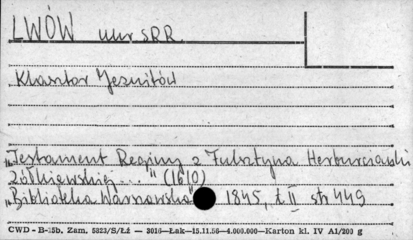 LWÓW ukr. SRR.
Klasztor Jezuitów
"Testament Reginy z Fulsztyna Herburcianki
Żółkiewskiej...." (1610)
"Biblioteka Warszawska" 1845, t. II str 449
CWD - B-15b. Zam. 5823/S/Łż — 3016—Łak—15.11.56—4.000.000—Karton kl. IV A1/200 g